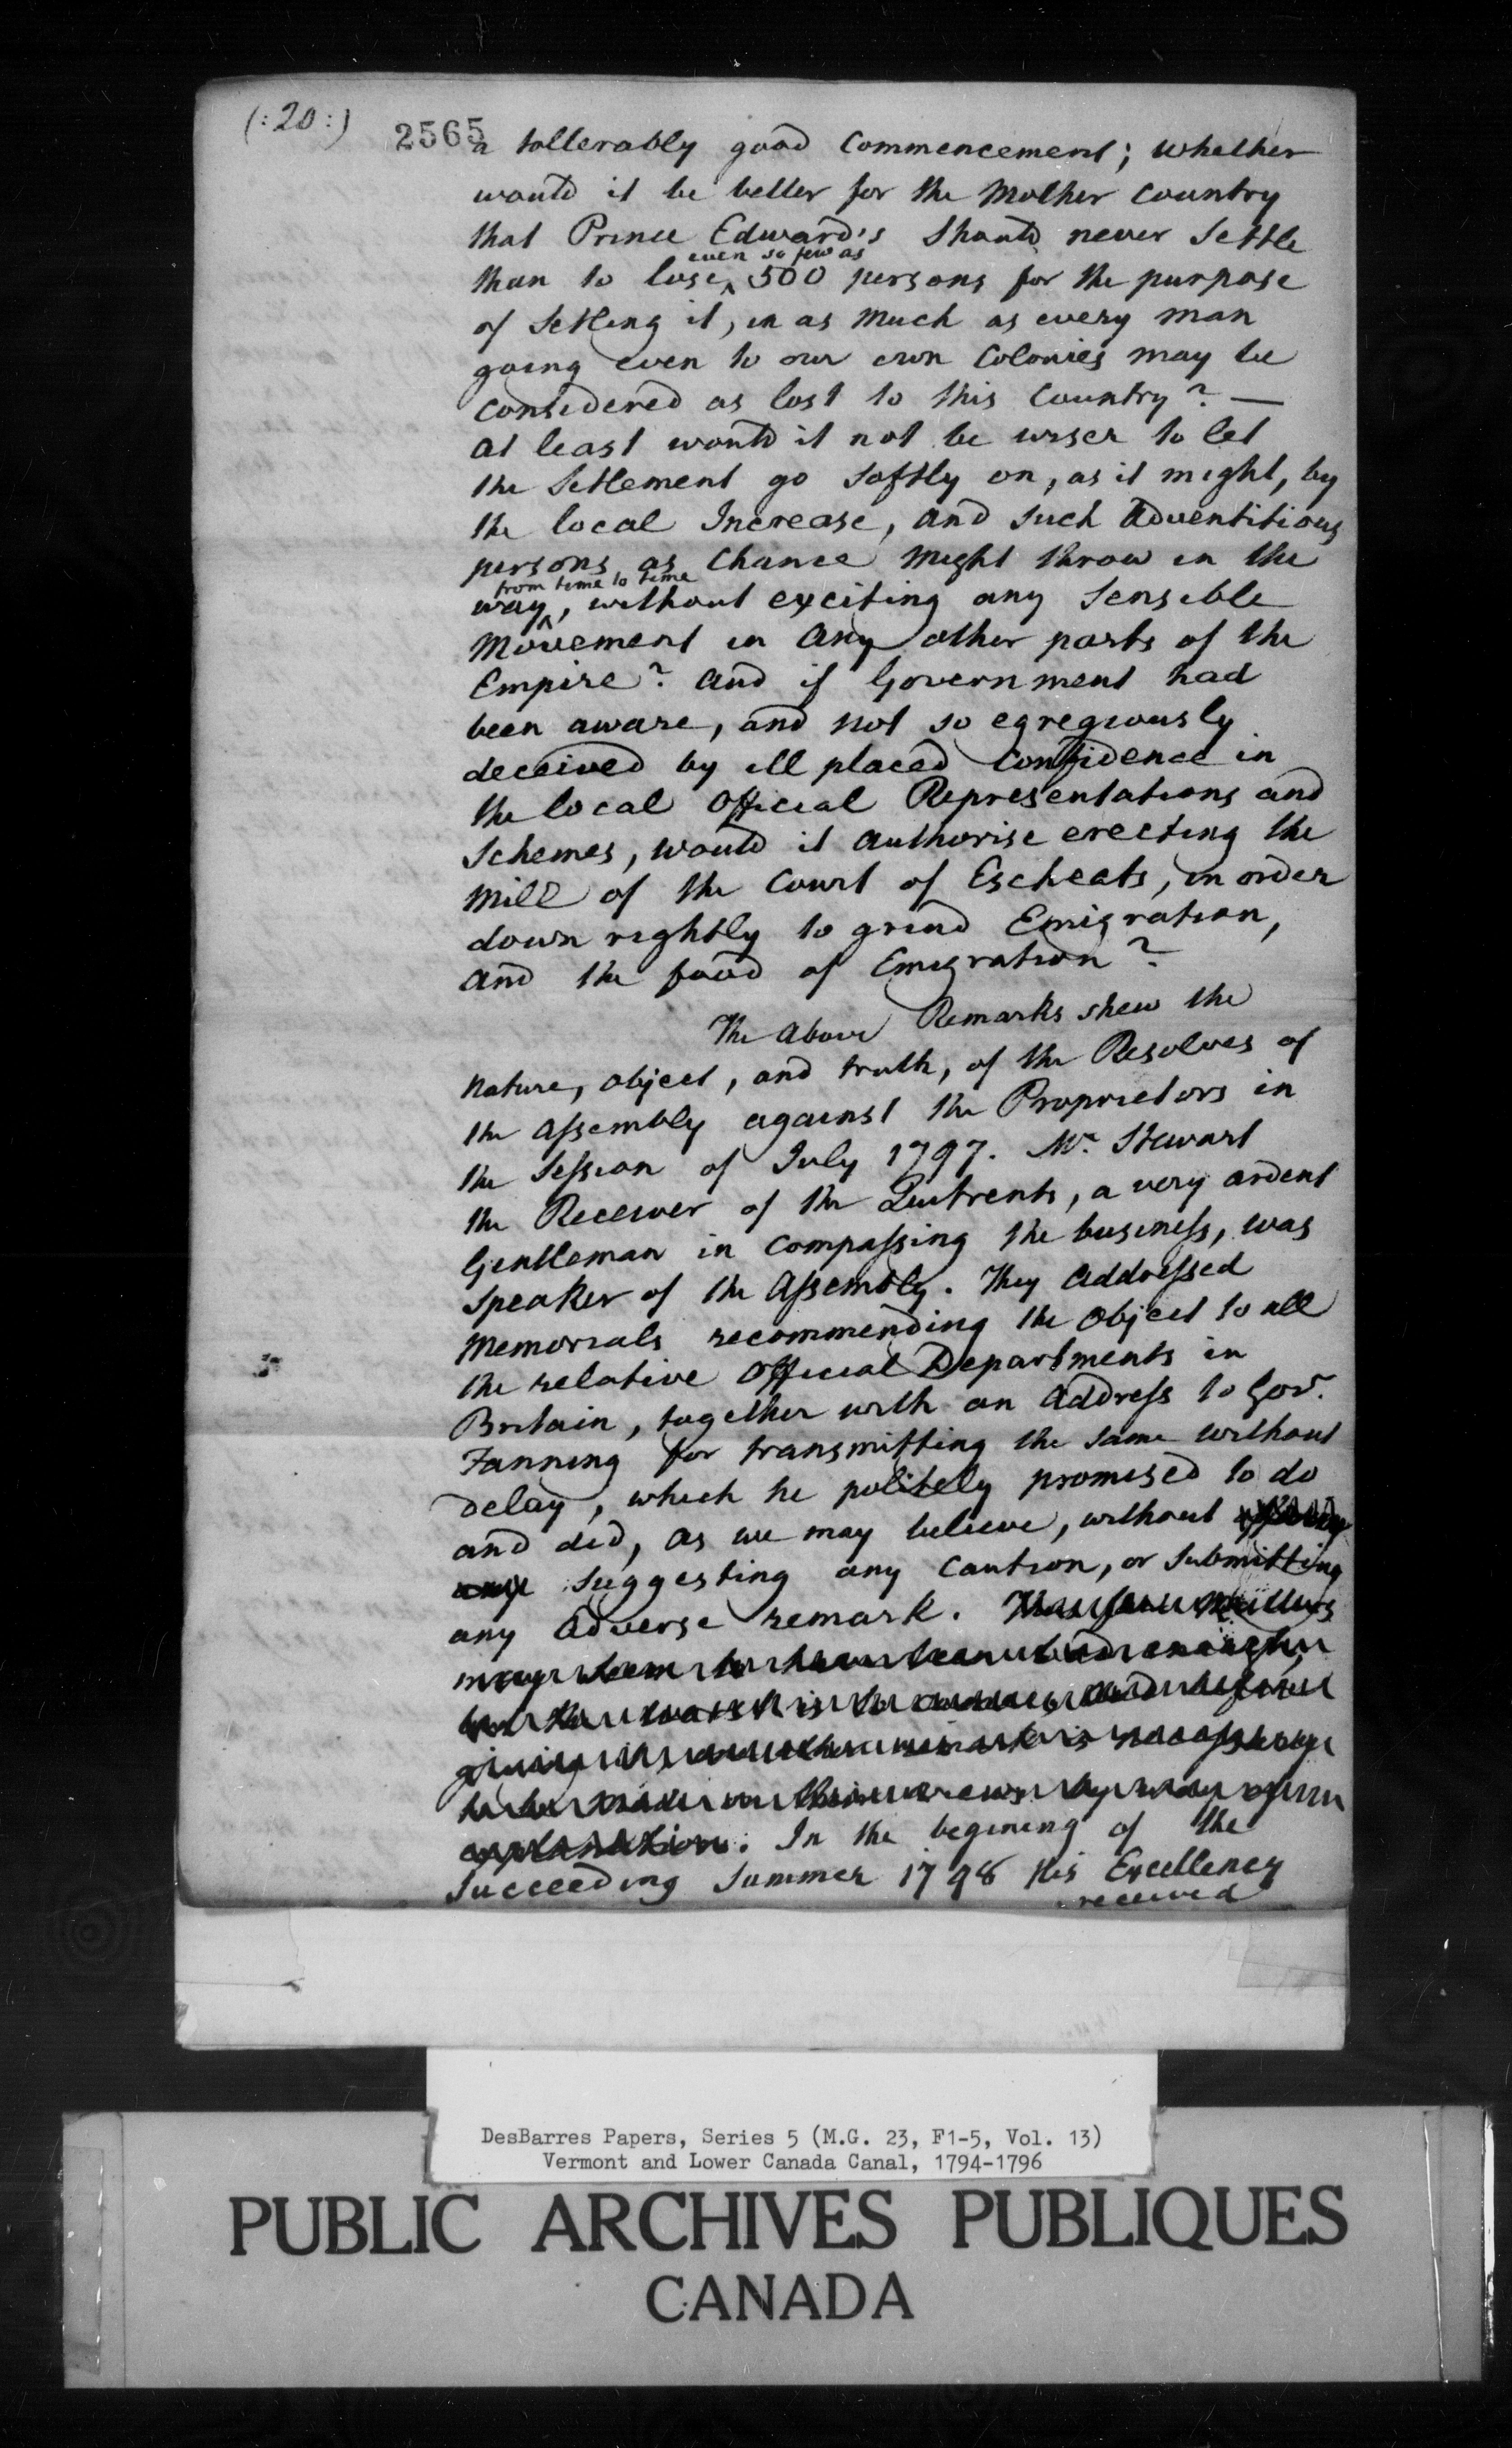 (:20:)
2565
a tollerably good Commencement; whether
would it be better for the Mother Country
that Prince Edward's should never settle
even so few as
than to lose ^ 500 persons for the purpose
of Setling it, in as much as every man
going even to our own Colonies may be
Considered as lost to this Country? —
at least would it not be wiser to let
the Setlement go softly on, as it might, by
the local Increase, and such adventitious
persons as Chance might throw in the
from time to time
way ^, without exciting any Sensible
Movement in any other parts of the
Empire? and if Government had
been aware, and not so egregiously
deceived by ill placed Confidence in
the local Official Representations and
Schemes, would it authorise erecting the
Mill of the Court of Escheats, in order
down rightly to grind Emigration,
and the food of Emigration?
The above Remarks shew the
nature, object, and truth, of the Resolves of
the assembly against the Proprietors in
the Session of July 1797. Mr. Stewart
the Receiver of the Quitrents, a very ardent
Gentleman in Compassing the business, was
Speaker of the Assembly. They addressed
Memorials recommending the object to all
the relative Official Departments in
Britain, together with an address to Govr.
Fanning for transmitting the same without
delay, which he politely promised to do
and did, as we may believe, without
any suggesting any Caution, or submitting
any adverse remark.
may seem to have been bad enough,
but the worst is to and before
giving it remark is necessary
to be made on their views by way of
explanation. In the begining of the
Succeeding Summer 1798 His Excellency
received
DesBarres Papers, Series 5 (M.G. 23, F1-5, Vol. 13)
Vermont and Lower Canada Canal, 1794-1796
PUBLIC ARCHIVES PUBLIQUES
CANADA